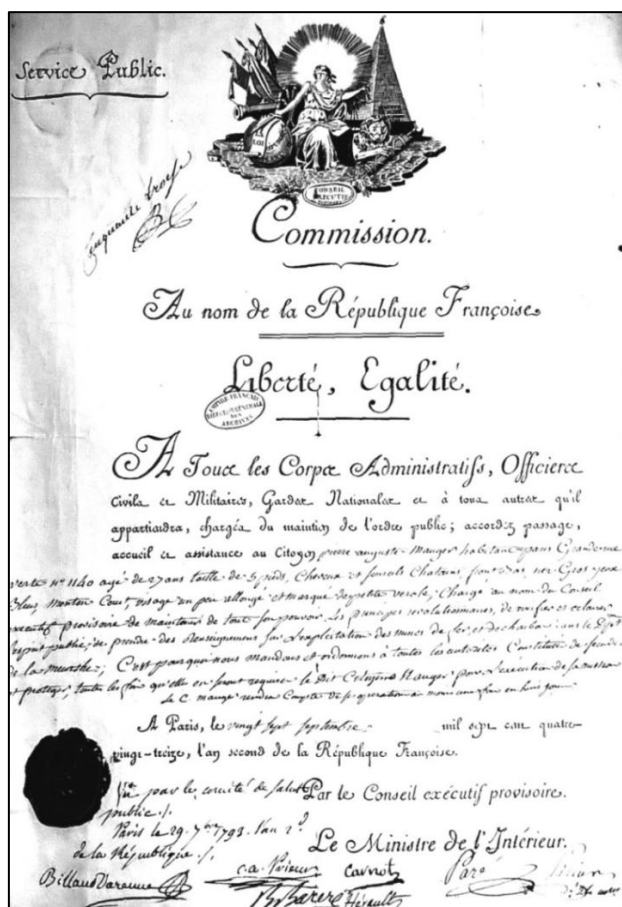 Service Public.
CONSEIL EXÉCUTIF
Commission.
Au nom de la République Françoise
Liberté, Egalité.
EMPIRE FRANÇAIS
DIRECTION GÉNÉRALE
DES
ARCHIVES
A Tous les Corps Administratifs, Officiers
Civils et Militaires, Gardes Nationales et à tous autres qu'il
appartiendra, chargés du maintien de l'ordre public; accordez passage,
accueil et assistance au Citoyen pierre auguste Mauger habitant Grande rue
verte n° 1140 agé de 27 ans taille de 5 pieds, Cheveux et sourcils Chatains nez Gros yeux
Bleus Menton Court visage un peu allongé et marqué de petite verole, Chargé au nom du Conseil
executif provisoire de maintenir de tout son pouvoir Les principes revolutionnaires, de et eclairer
l'esprit public, de prendre des Renseignemens sur L'exploitation des mines de fer et de charbon dans le
de la meurthe; C'est pourquoi nous mandons et ordonnons à toutes les autorités Constituées de
et proteger, toutes les fois qu'elles en seront requises le Dit Citoyen Mauger pour L'execution de sa mission
Le C. mauger rendra Compte de ses operations au moins une fois en huit jours
A Paris, le vingt sept septembre mil sept cent quatre
vingt-treize, l'an second de la République Françoise.
Vu par le comité de salut
public
Paris le 29. 7bre 1793. l'an 2d
de la République
Par le Conseil exécutif provisoire.
Le Ministre de l'Intérieur.
Billaud Varenne
C.A. Prieur
Carnot
Paré
B. Barere
Hérault